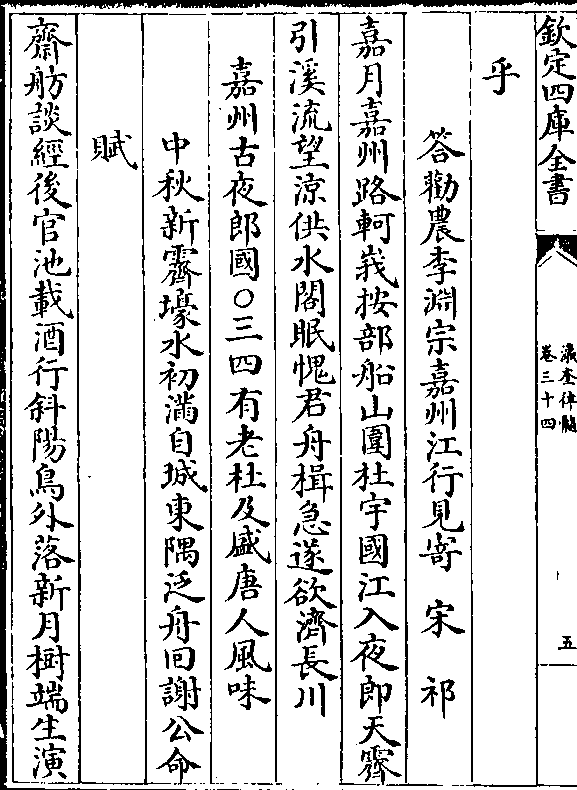 欽定四庫全書
瀛奎律髓
卷三十四
五
乎
答勸農李淵宗嘉州江行見寄 宋祁
嘉月嘉州路軻峩按部船山圍杜宇國江入夜郎天霽
引溪流望涼供水閣眠愧君舟楫急遂欲濟長川
嘉州古夜郎國○三四有老杜及盛唐人風味
中秋新霽壕水初滿自城東隅泛舟回謝公命
賦
齋舫談經後官池載酒行斜陽鳥外落新月樹端生演